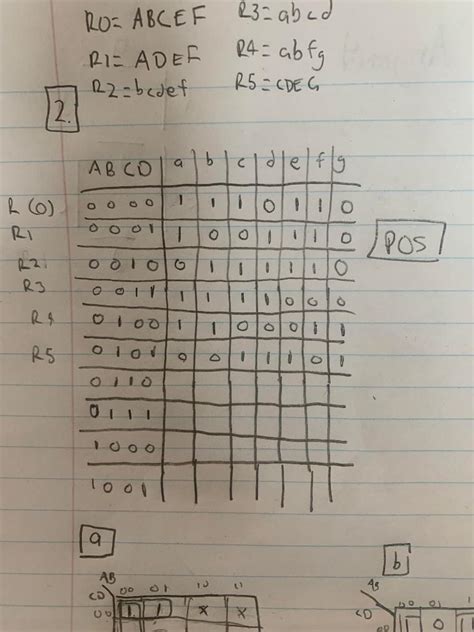 R0= ABCEF R3= abcd
R1= ADEF R4= abfg
R2= bcdef R5= CDEG
2.
AB CD a b c d e f g
R(0) 0000 1 1 1 0 1 1 0
R1 0001 1 0 0 1 1 1 0
R2 0010 0 1 1 1 1 1 0
R3 0011 1 1 1 1 0 0 0
R4 0100 1 1 0 0 0 1 1
R5 0101 0 0 1 1 1 0 1
0110
0111
1000
1001
POS
a b
AB 00 01 10 11
CD 00 1 1 x x
AB 00 01
CD 0